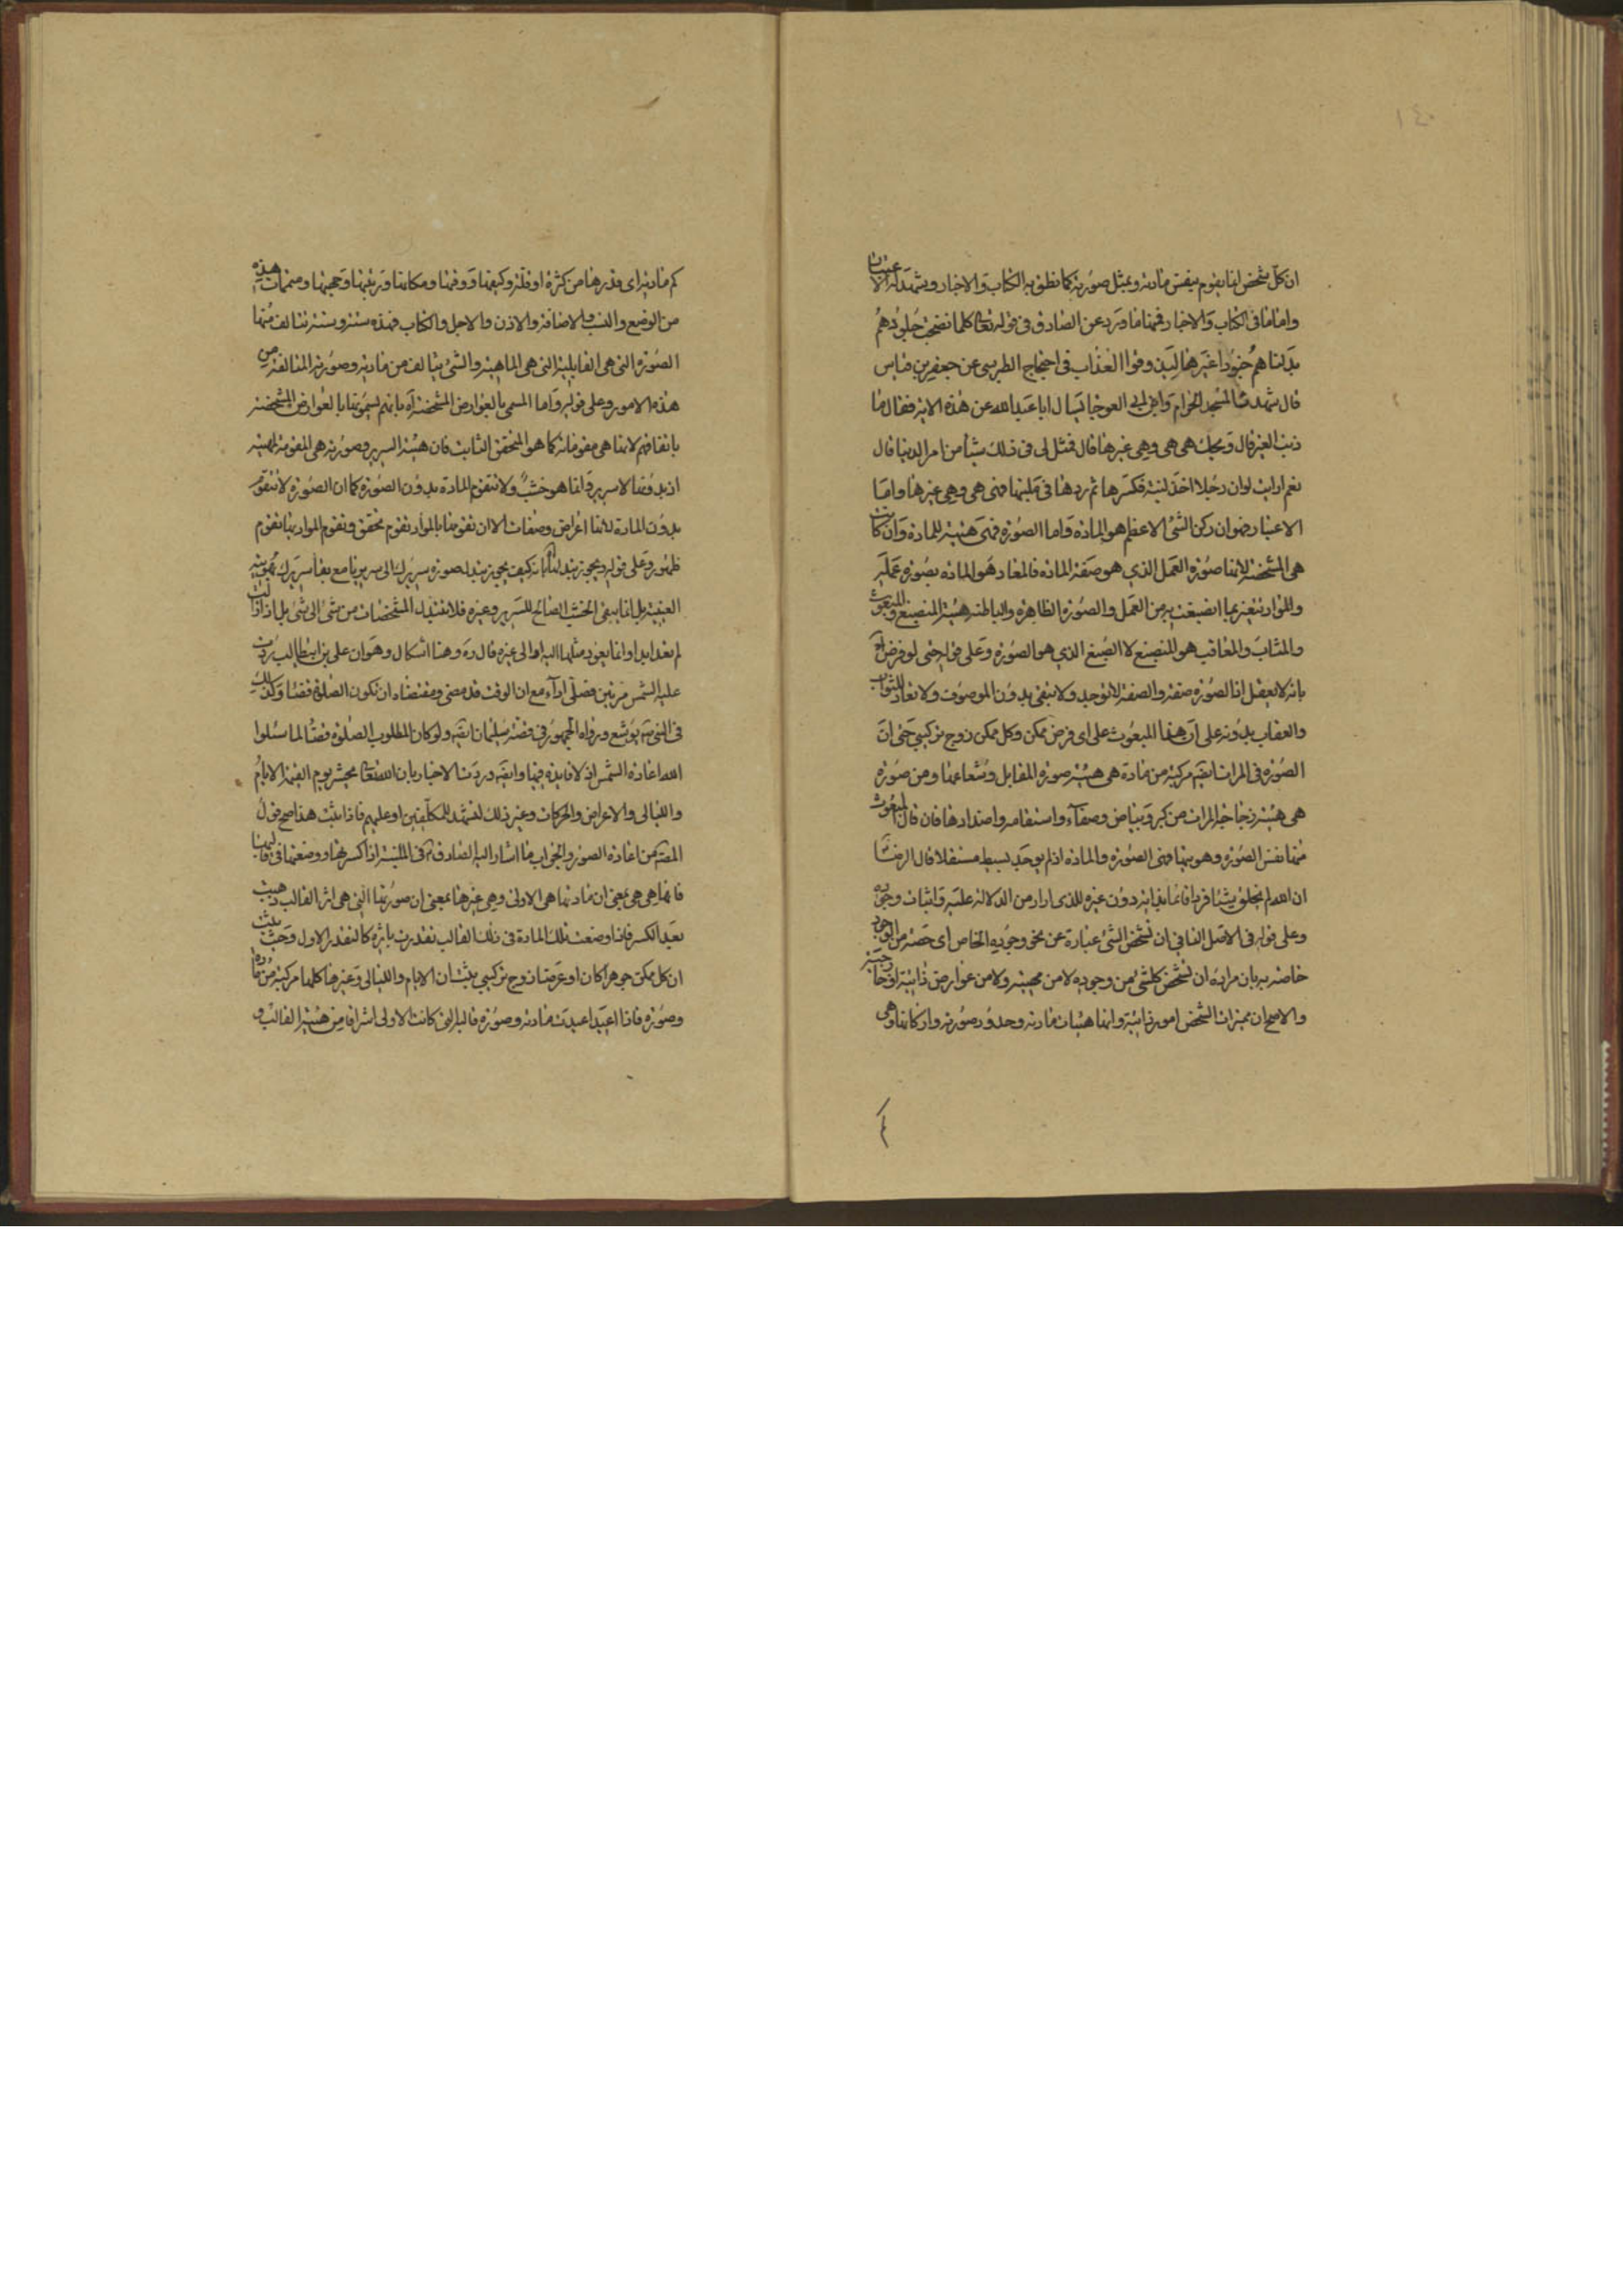 ١٤٠
ان كل شخص انما يقوم بنفس مادته وبمثل صورته كما نطق به الكتاب والاخبار ويشهد له الاعتبار
واما ما فى الكتاب والاخبار فمنها ما ورد عن الصادق فى قوله تعالى كلما نضجت جلودهم
بدلناهم جلودا غيرها ليذوقوا العذاب فى احتجاج الطبرسى عن حفص بن غياث
قال شهدت المسجد الحرام وابن ابى العوجا يسال ابا عبد الله عن هذه الاية فقال ما
ذنب الغير قال ويحك هى هى وهى غيرها قال فمثل لى فى ذلك شيئا من امر الدنيا قال
نعم ارايت لو ان رجلا اخذ لبنة فكسرها ثم ردها فى ملبنها فهى هى وهى غيرها واما
الاعتبار فهو ان ركن الشئ الاعظم هو المادة واما الصورة فهى هيئة للمادة وان كانت
هى المشخصة لانها صورة العمل الذي هو صفة المادة فالمعاد هو المادة بصورة عمله
والمواد تتغير بما انصبغت به من العمل والصورة الظاهرة والباطنة هيئة المنصبغ والمبعوث
والمثاب والمعاقب هو المنصبغ لا الصبغ الذي هو الصورة وعلى قوله حتى لو فرض اه
بانه لا يعقل اذ الصورة صفة والصفة لا توجد ولا تبقى بدون الموصوف ولا تعاد للثواب
والعقاب بدونه على ان هذا المبعوث على اى فرض ممكن وكل ممكن زوج تركيبي حتى ان
الصورة فى المرات ايضا مركبة من مادة هى هيئة صورة المقابل وشعاعها ومن صورة
هى هيئة زجاجة المرات من كبر وبياض وصفاء واستقامة واضدادها فان قال المبعوث
منها نفس الصورة وهو بها فهى الصورة والمادة اذ لم يوجد بسيط مستقلا قال الرضا
ان الله لم يخلق شيئا فردا قائما بذاته دون غيره للذى اراد من الدلالة عليه واثبات وجوده
وعلى قوله فى الاصل الثانى ان تشخص الشئ عبارة عن نحو وجوده الخاص اى حصة من الوجود
خاصة به بان مراده ان تشخص كل شئ من وجوده لا من مهيته ولا من عوارض ذاتية او خارجية
والاصح ان مميزات الشخص امور ذاتية وانها هيئات مادته وحدود صورته واركانها وهى
كم مادته اى قدرها من كثرة او قلة وكيفها ووقتها ومكانها ورتبتها وجهتها ومتممات هذه
من الوضع والنسب والاضافة والاذن والاجل والكتاب فهذه ستة وستة تتالف منها
الصورة التى هى القابلية التى هى الماهية والشئ يتالف من مادته وصورته المتالفة من
هذه الامور وعلى قوله واما المسمى بالعوارض المشخصة اه بانهم يسمونها بالعوارض المشخصة
باتفاقهم لانها هى مقوماته كما هو المتحقق الثابت فان هيئة السرير وصورته هى المقومة لمهيته
اذ بدونها لا سرير وانما هو خشب ولا تتقوم المادة بدون الصورة كما ان الصورة لا تتقوم
بدون المادة لانها اعراض وصفات الا ان تقومها بالمواد تقوم تحقق وتقوم المواد بها تقوم
ظهور وعلى قوله ويجوز تبدلها بانه كيف يجوز تبدل صورة سريرك الى سرير ما مع بقاء سريرك بهويته
العينية بل انما يبقى الخشب الصالح للسرير وغيره فلا تتبدل المشخصات من شئ الى شئ بل اذا زالت
لم تعد ابدا وانما يعود مثلها اليه او الى غيره قال ره وهنا اشكال وهو ان على بن ابيطالب ردت
عليه الشمس مرتين فصلى اداء مع ان الوقت قد مضى ومقتضاه ان تكون الصلوة قضاء وكذلك
فى النبى يوشع ورواه الجمهور فى قصة سليمان ايضا ولو كان المطلوب الصلوة قضاء لما سئلوا
الله اعادة الشمس اذ لا فايدة فيها وايضا وردت الاخبار بان الله تعالى يحشر يوم القيمة الايام
والليالى والاعراض والحركات وغير ذلك لتشهد للمكلفين او عليهم فاذا ثبت هذا صح قول
المصنف من اعادة الصور والجواب ما اشار اليه الصادق فى اللبنة اذا كسرتها ووضعتها فى قالبها
فانها هى هى بمعنى ان مادتها هى الاولى وهى غيرها بمعنى ان صورتها التى هى اثر القالب ذهبت
بعد الكسر فاذا وضعت تلك المادة فى ذلك القالب تقدرت باثره كالتقدر الاول وحيث ثبت
ان كل ممكن جوهرا كان او عرضا زوج تركيبي يثبت ان الايام والليالى وغيرها كلها مركبة من مادة
وصورة فاذا اعيد اعيدت مادته وصورة قالبه التى كانت الاولى اشراقا من هيئة القالب و